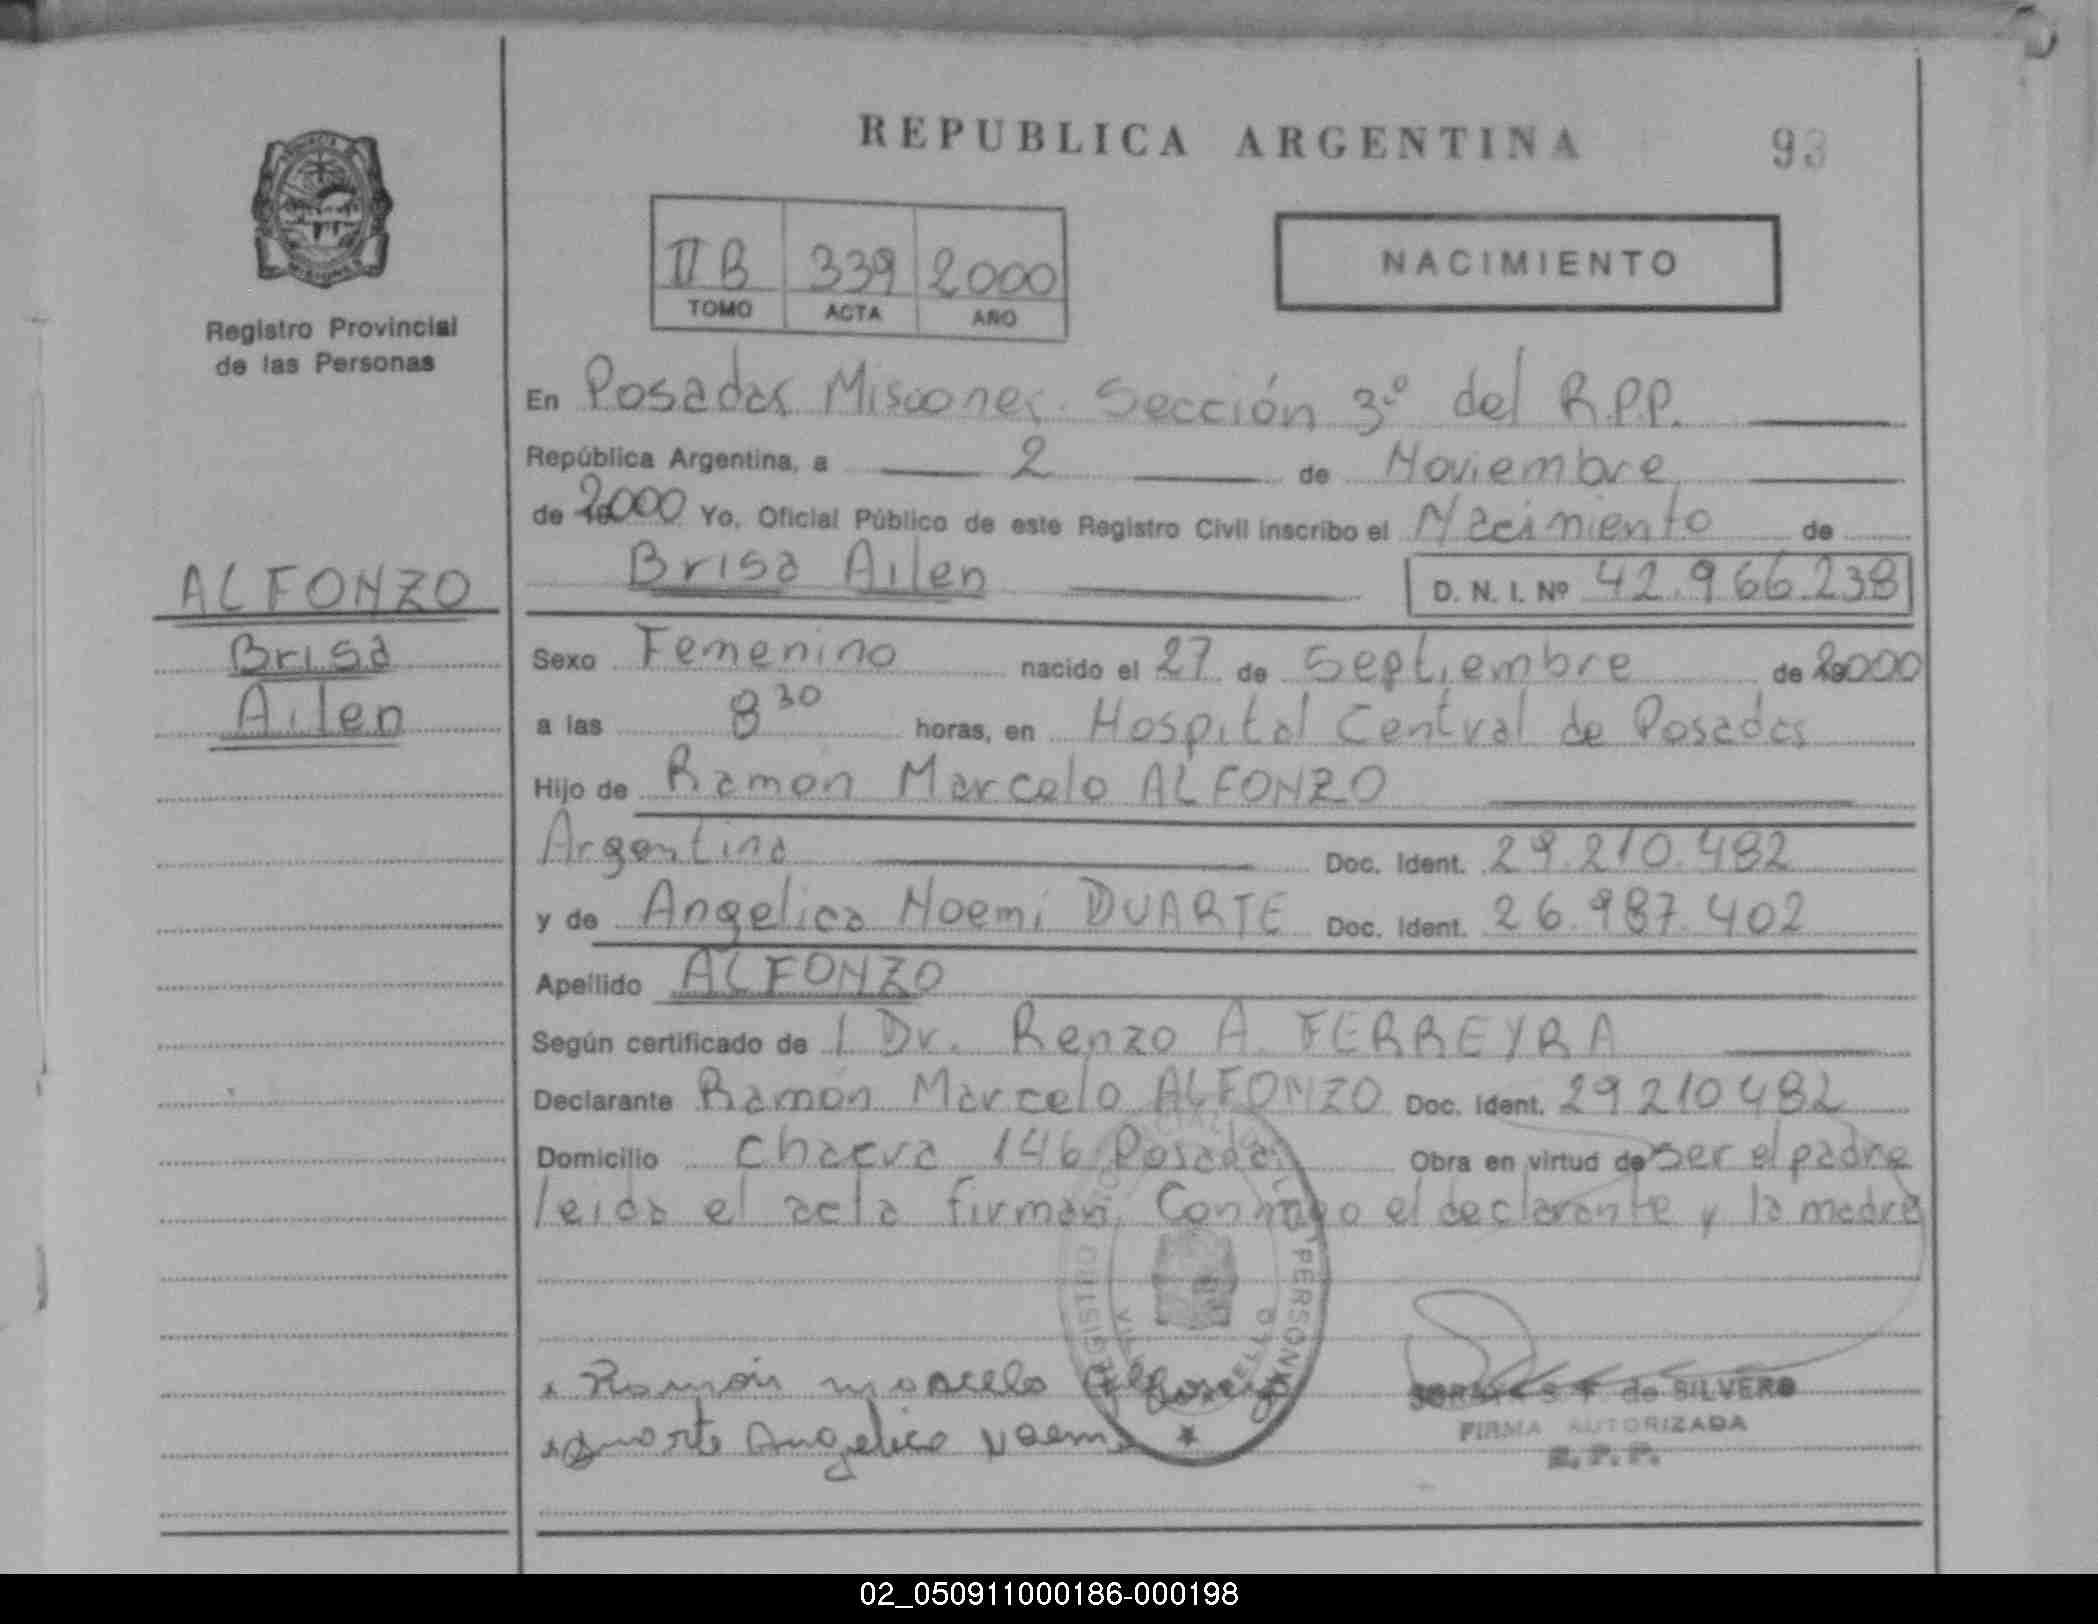 REPUBLICA ARGENTINA
93
Registro Provincial
de las Personas
II B 339 2000
TOMO ACTA AÑO
NACIMIENTO
En Posadas Misiones Sección 3º del R.P.P.
República Argentina, a 2 de Noviembre
de 2000 Yo, Oficial Público de este Registro Civil inscribo el Nacimiento de
Brisa Ailen D. N. I. Nº 42.966.238
ALFONZO
Brisa
Ailen
Sexo Femenino nacido el 27 de Septiembre de 2000
a las 8 30 horas, en Hospital Central de Posadas
Hijo de Ramón Marcelo ALFONZO
Argentina Doc. Ident. 29.210.482
y de Angelica Noemi DUARTE Doc. Ident. 26.987.402
Apellido ALFONZO
Según certificado de l Dr. Renzo A. FERREYRA
Declarante Ramón Marcelo ALFONZO Doc. Ident. 29210482
Domicilio chacra 146 Posadas Obra en virtud de ser el padre
leida el acta firman, Conmigo el declarante y la madre
REGISTRO PERSONAS
Ramón marcelo Alfonzo
Duarte Angelica Noemi
S. F. de SILVERO
FIRMA AUTORIZADA
R.P.P.
02_050911000186-000198